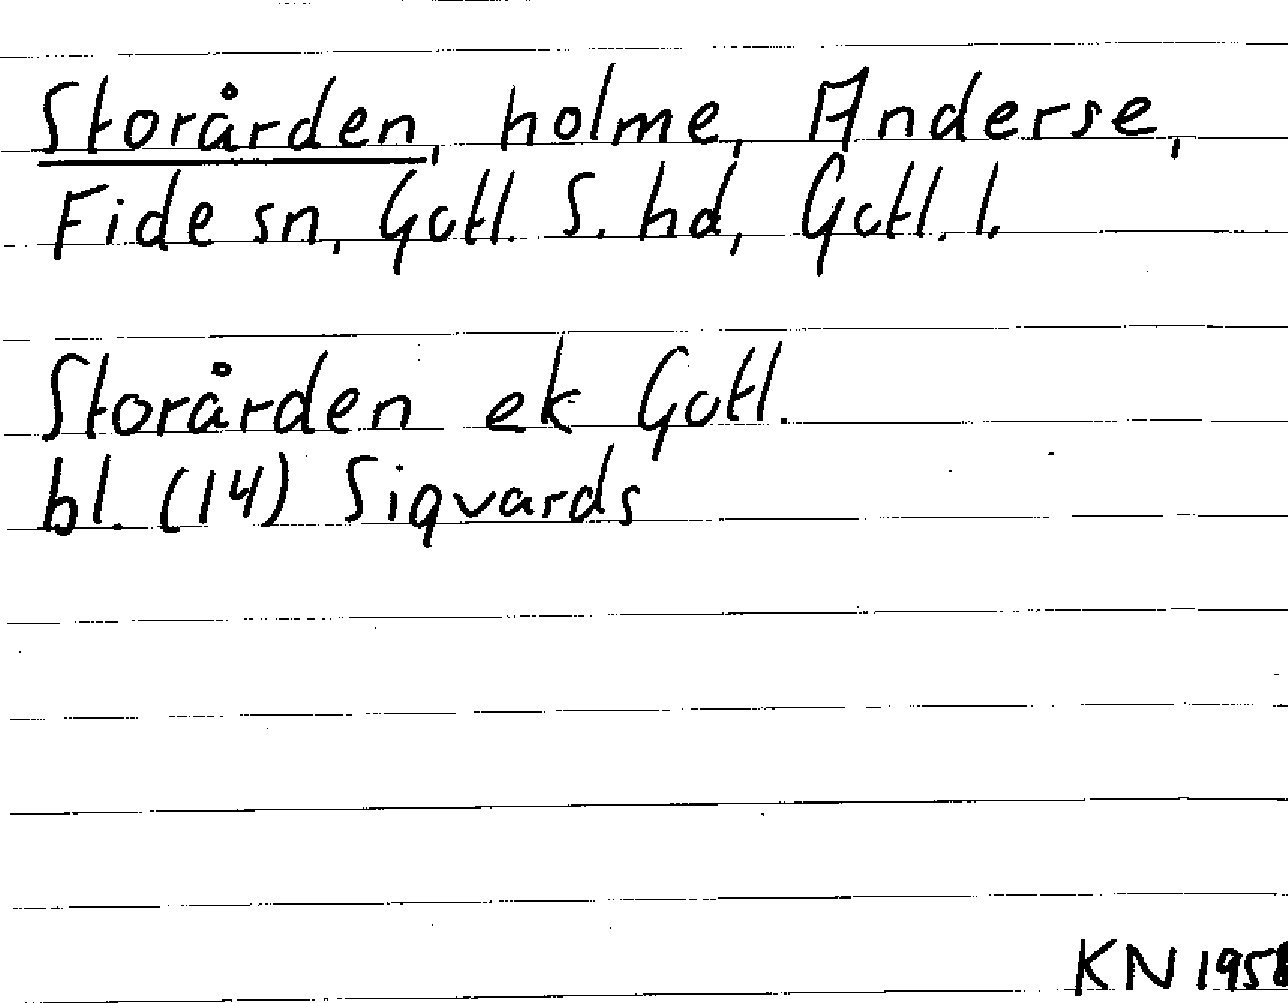 Storården, holme, Anderse,
Fide sn, Gotl. S. hd, Gotl. l.
Storården ek Gotl.
bl. (14) Sigvards
KN 1958